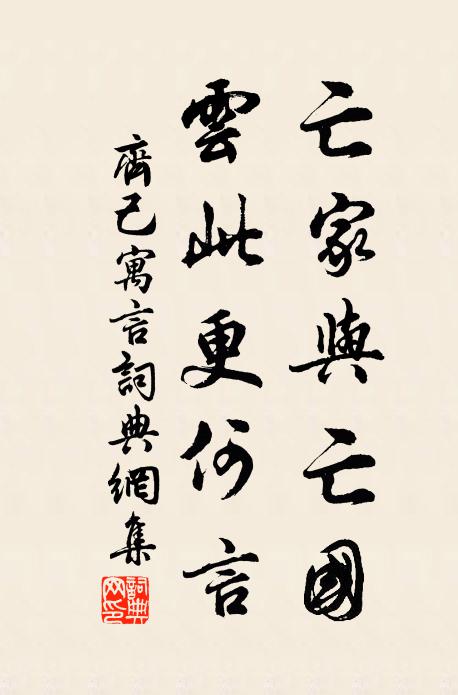 亡家與亡國
雲此更何言
齊己寓言詞典網集
詞典網印